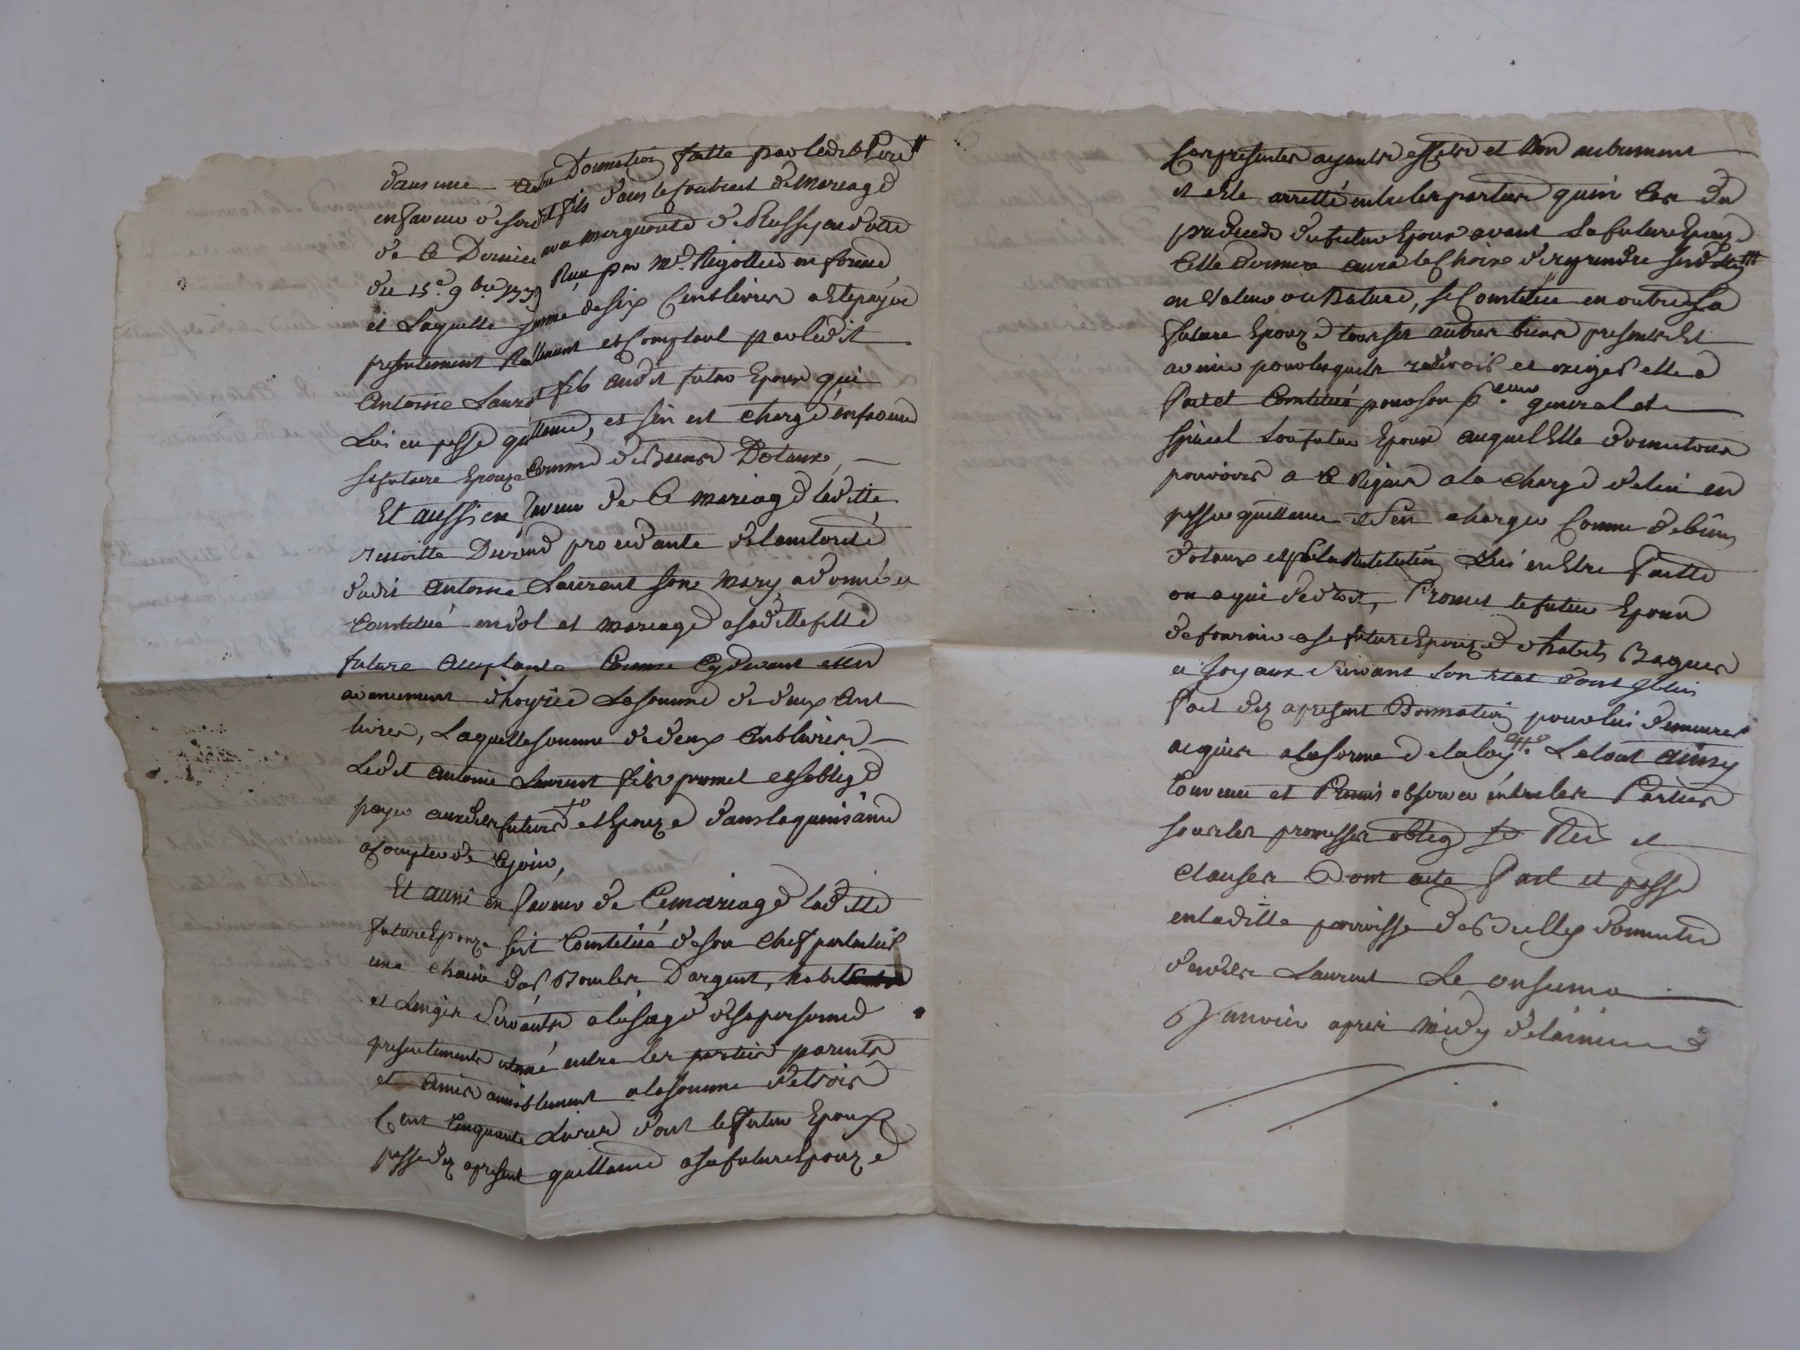 dans une donnation faitte par ledit Pierre
en faveur de son dit fils dans le contrat de mariage
de ce dernier avec marguerite de Russy en datte
du 15e 9bre Reçu par Me Rigottier en forme
et Laquelle somme de six Cent livres a eté payée
presentement Reellement et Comptant par ledit
Antoine Laurent fils audit futur Epoux qui
Lui en passe quittance, et s'en est chargé envers
sa future Epouze Comme de Biens Dotaux,
Et aussi en faveur de Ce mariage ladite
Durand procedante de lautorité
dudit antoine Laurent son Mary, a donné et
Constitué en dot et mariage a sa ditte fille
future acceptante Comme Cy devant et en
avancement d'hoyrie La somme de deux Cent
livres, Laquelle somme de deux Cent livres
Ledit antoine Laurent fils promet et s'oblige
payer auxdits futurs et Epouze dans la quinzaine
a Compter de Cejour,
Et aussi en faveur de Ce mariage laditte
future Epouze s'est Constitué de son Chef
une chaine d'or Boucles D'argent, habits
et Linges servants a l'usage de sa personne
presentement estimé entre les parties parents
et amis amiablement a la somme de trois
Cent Cinquante Livres dont le futur Epoux
passe dez apresent quittance a sa future Epouze
Les presentes ayants effets et Non autrement
et a été arretté entre les parties qu'en Cas du
predecedé du futur Epoux avant La future Epouze
Cette derniere aura le Choix de reprendre ses
en Valeur ou Nature, se Constitue en outre La
future Epouze tous ses autres biens presents Et
avenir pour lesquels recevoir et exiger elle a
fait et Constitué pour son general et
special son futur Epoux auquel Elle donne tous
pouvoirs a Ce Requis a la Charge de lui en
passer quittance et s'en charger Comme de biens
dotaux et la Restitution Lui en Etre faitte
ou a qui de droit, Promet le futur Epoux
de fournir a sa future Epouze d'habits Bagues
et Joyaux suivant son Etat dont Il lui
fait dez apresent Donnation pour lui demeurer
acquise a la forme de la loy. Le tout ainsy
Convenu et Promis observer entre les Parties
sous les promesses oblig et
clauses Dont acte fait et passé
en laditte parroisse de Brullys domicile
desdits Laurent Le onsieme
Janvier apres midy de l'année